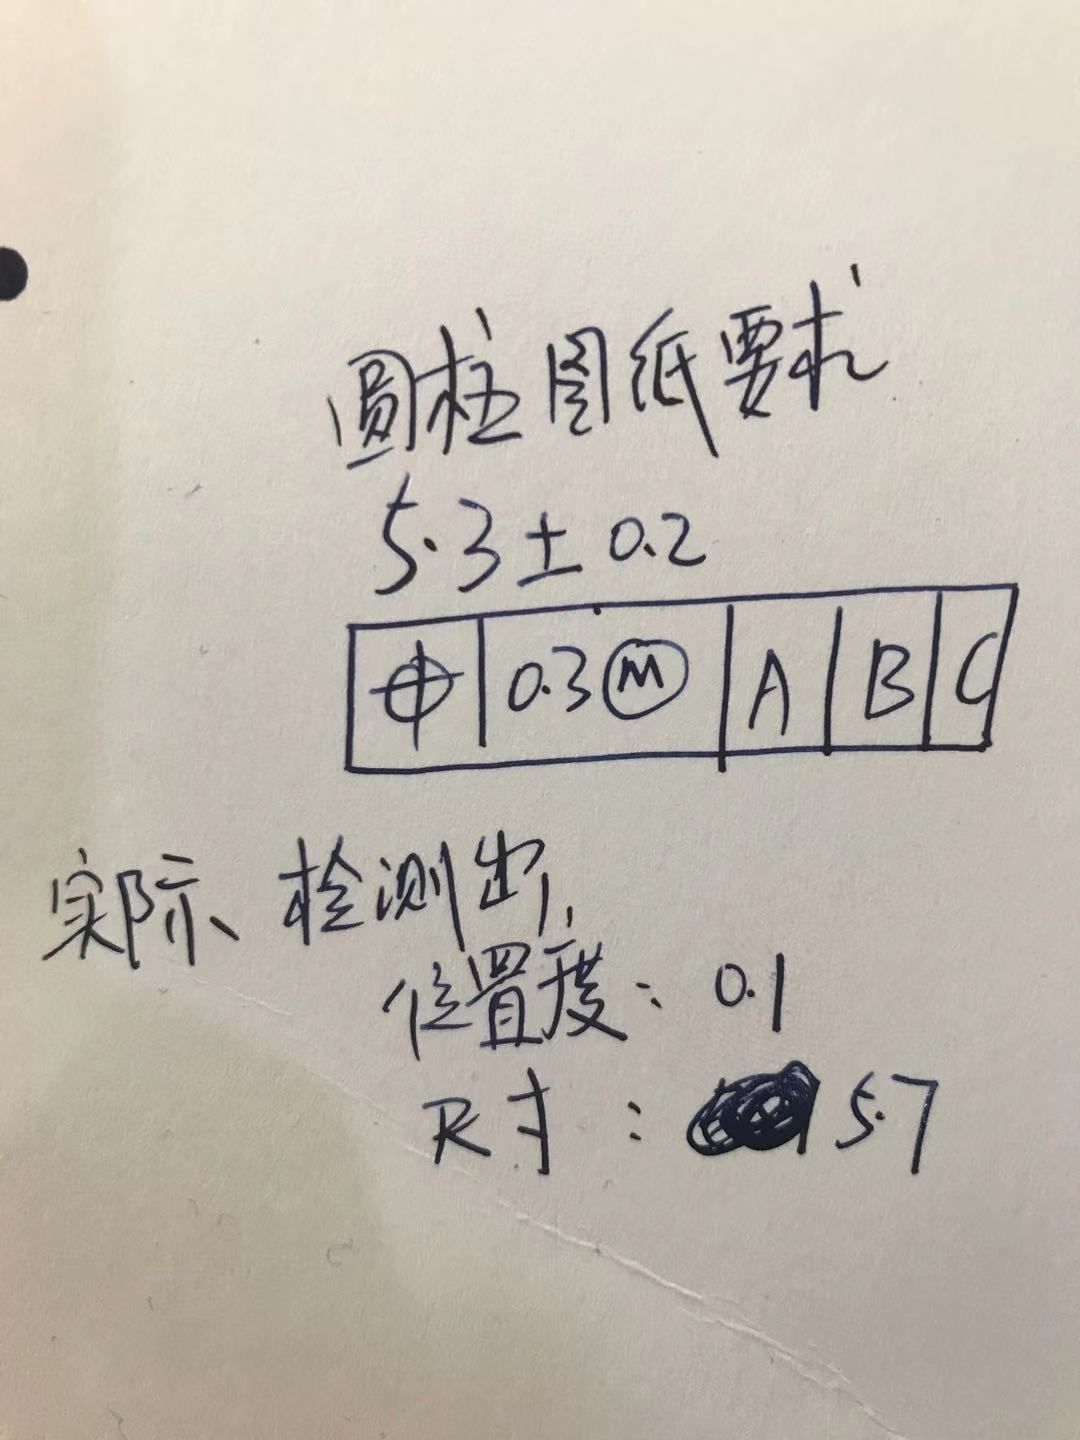 圆柱图纸要求
5.3±0.2
⌖ 0.3Ⓜ A B C
实际检测出
位置度: 0.1
尺寸: 5.7